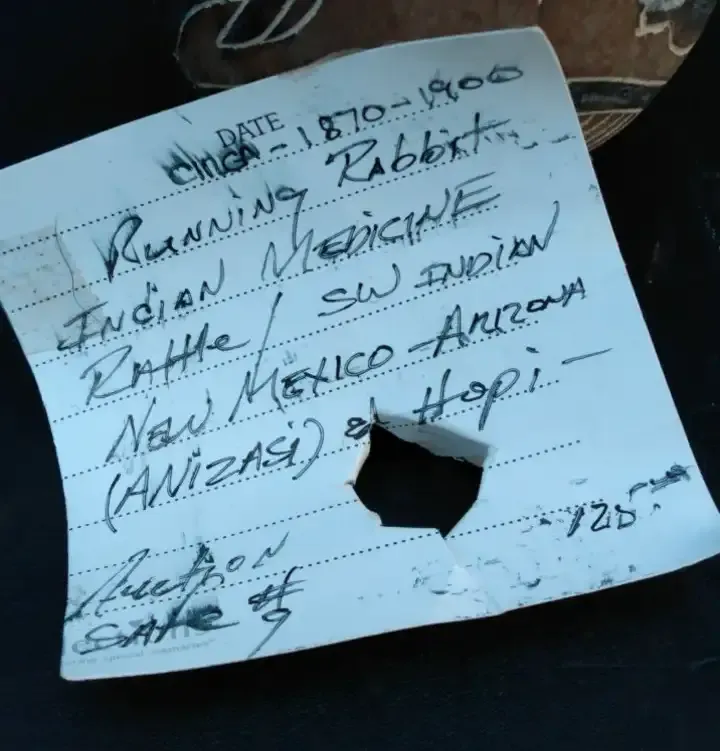 DATE
CIRCA - 1870-1900
RUNNING RAbbit
INDIAN MEDICINE
RAttle / SW INDIAN
NEW MEXICO - ARIZONA
(ANIZASI) Hopi -
125.
Auction
SALE #
9